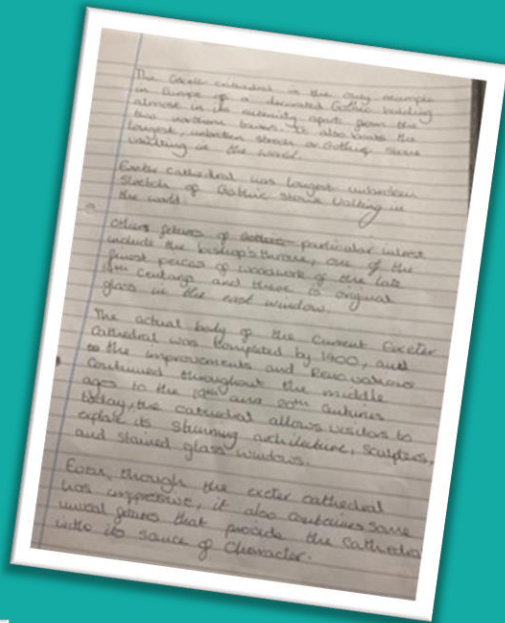 The Exeter cathedral is the only example
in Europe of a decorated Gothic building
almost in its entirety apart from the
two northern towers. It also boasts the
longest unbroken stretch or Gothic stone
vaulting in the world.
Exeter cathedral has longest unbroken
stretch of Gothic stone in
the world.
Others of particular intrest
include the bishop's throne, one of the
finest peices of woodwork of the late
and there is original
glass in the east window.
The actual body of the current Exeter
Cathedral was completed by 1400, and
the improvements and Renovations
Continued throughout the middle
ages to the 19th and 20th
today, the cathedral allows visitors to
explore its stunning architecture, sculpters,
and stained glass windows.
Even, through the exeter cathedral
has impressive, it also containes some
that provide the Cathedral
with its sance of Character.